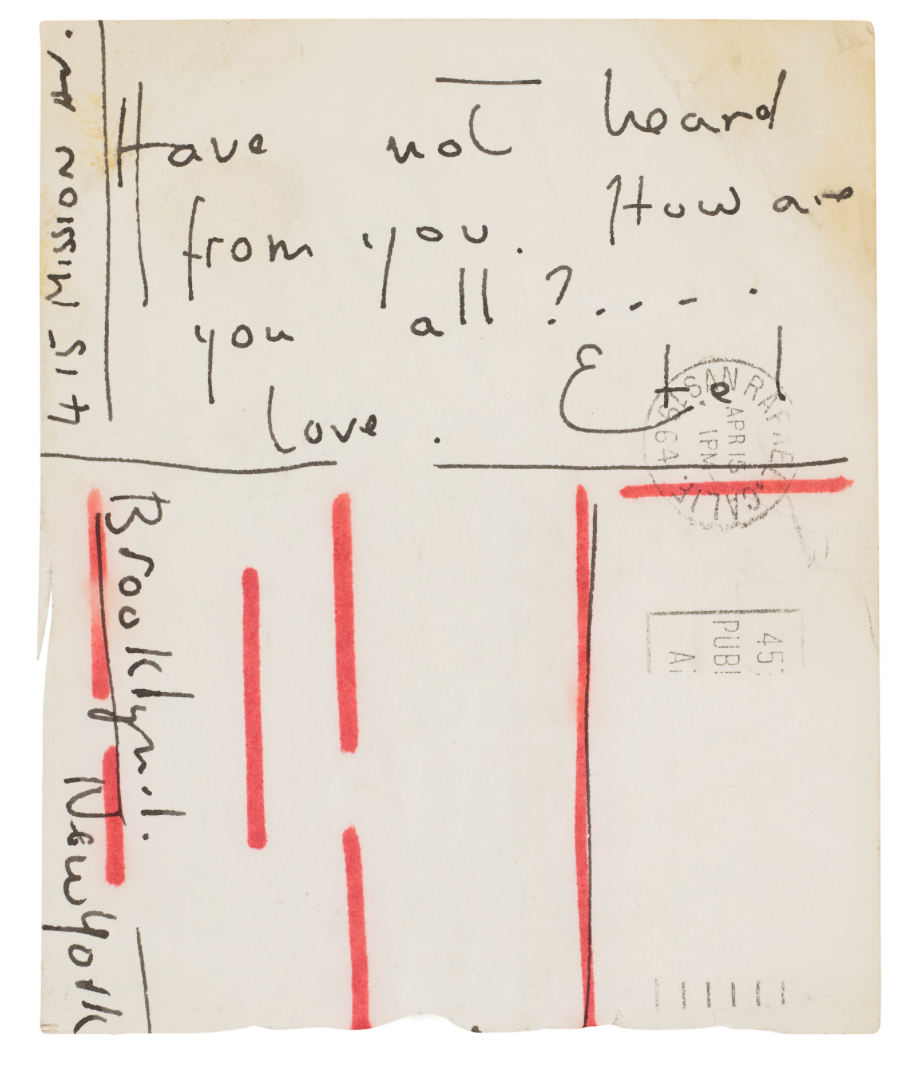 415 MISSION Av.
Have not heard
from you. How are
you all ?.....
Love. Etel
SAN RAFAEL CALIF.
APR 15
1 PM
1964
Brooklyn.1.
New York
45
PUBL
A